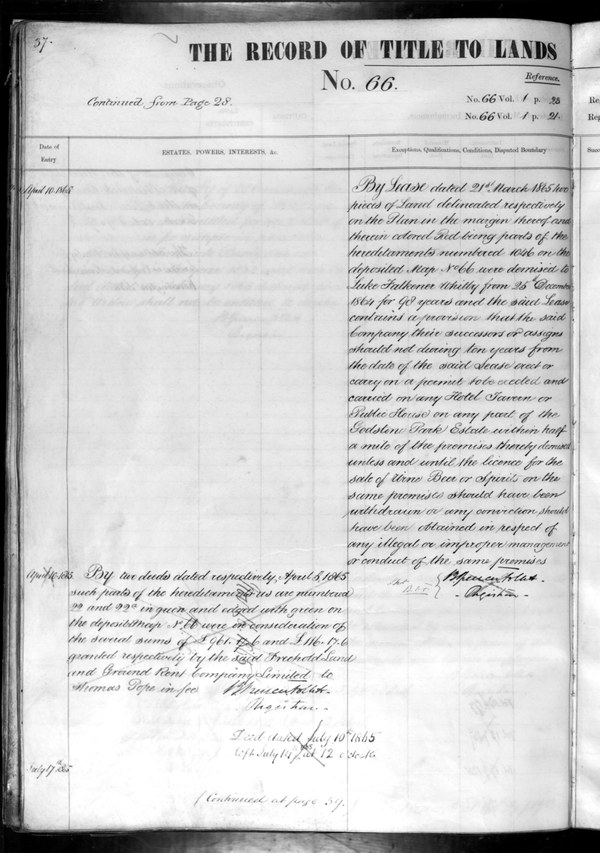 37.
THE RECORD OF TITLE TO LANDS
No. 66.
Reference.
Continued from Page 28.
No. 66 Vol. 1 p. 28
No. 66 Vol. 1 p. 21.
Date of
Entry
ESTATES, POWERS, INTERESTS, &c.
Exceptions, Qualifications, Conditions, Disputed Boundary
April 10. 1865
By Lease dated 21st March 1865 two
pieces of Land delineated respectively
on the Plan in the margin thereof and
therein colored Red being parts of the
hereditaments numbered 1046 on the
deposited Map No 66 were demised to
Luke Falkener Whitly from 25th December
1864 for 98 years and the said Lease
contains a provision that the said
Company their successors or assigns
should not during ten years from
the date of the said Lease erect or
carry on or permit to be erected and
carried on any Hotel Tavern or
Public House on any part of the
Godstone Park Estate within half
a mile of the premises thereby demised
unless and until the licence for the
sale of Wine Beer or Spirits on the
same premises should have been
withdrawn or any conviction should
have been obtained in respect of
any illegal or improper management
or conduct of the same premises
Registrar
April 10. 1865
By two deeds dated respectively April 5, 1865
such parts of the hereditaments as are numbered
22 and 22a in green and edged with green on
the deposited Map No 66 were in consideration of
the several sums of £961. 17. 6 and £116. 17. 6
granted respectively by the said Freehold Land
and Ground Rent Company Limited to
Thomas Pope in fee
Registrar
Deed dated July 10th 1865
left July 14 at 12 o'clock
July 17th 1865
(Continued at page 59.